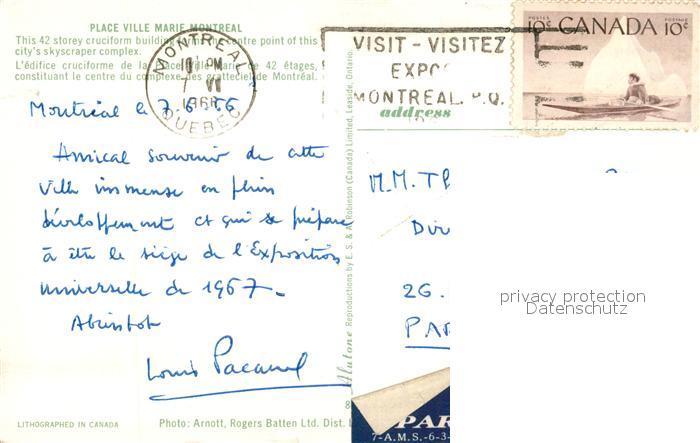 PLACE VILLE MARIE MONTREAL
This 42 storey cruciform building forms the centre point of this
city's skyscraper complex.
L'édifice cruciforme de la Place Ville Marie de 42 étages,
constituant le centre du complexe des gratteciel de Montréal.
MONTREAL
10 PM
7 VI
1966
QUEBEC
VISIT - VISITEZ
EXPO
MONTREAL. P.Q.
POSTES POSTAGE
10c CANADA 10c
address
Montréal le 7.6.66
Amical souvenir de cette
ville immense en plein
développement et qui se prépare
à être le siège de l'Exposition
universelle de 1967-
A bientôt
Louis
Alutone Reproductions by E. S. & A. Robinson (Canada) Limited, Leaside, Ontario.
M.M. Th
Dir
26.
PAR
privacy protection
Datenschutz
PAR
7-A.M.S.-6-3-
LITHOGRAPHED IN CANADA
Photo: Arnott, Rogers Batten Ltd. Dist.